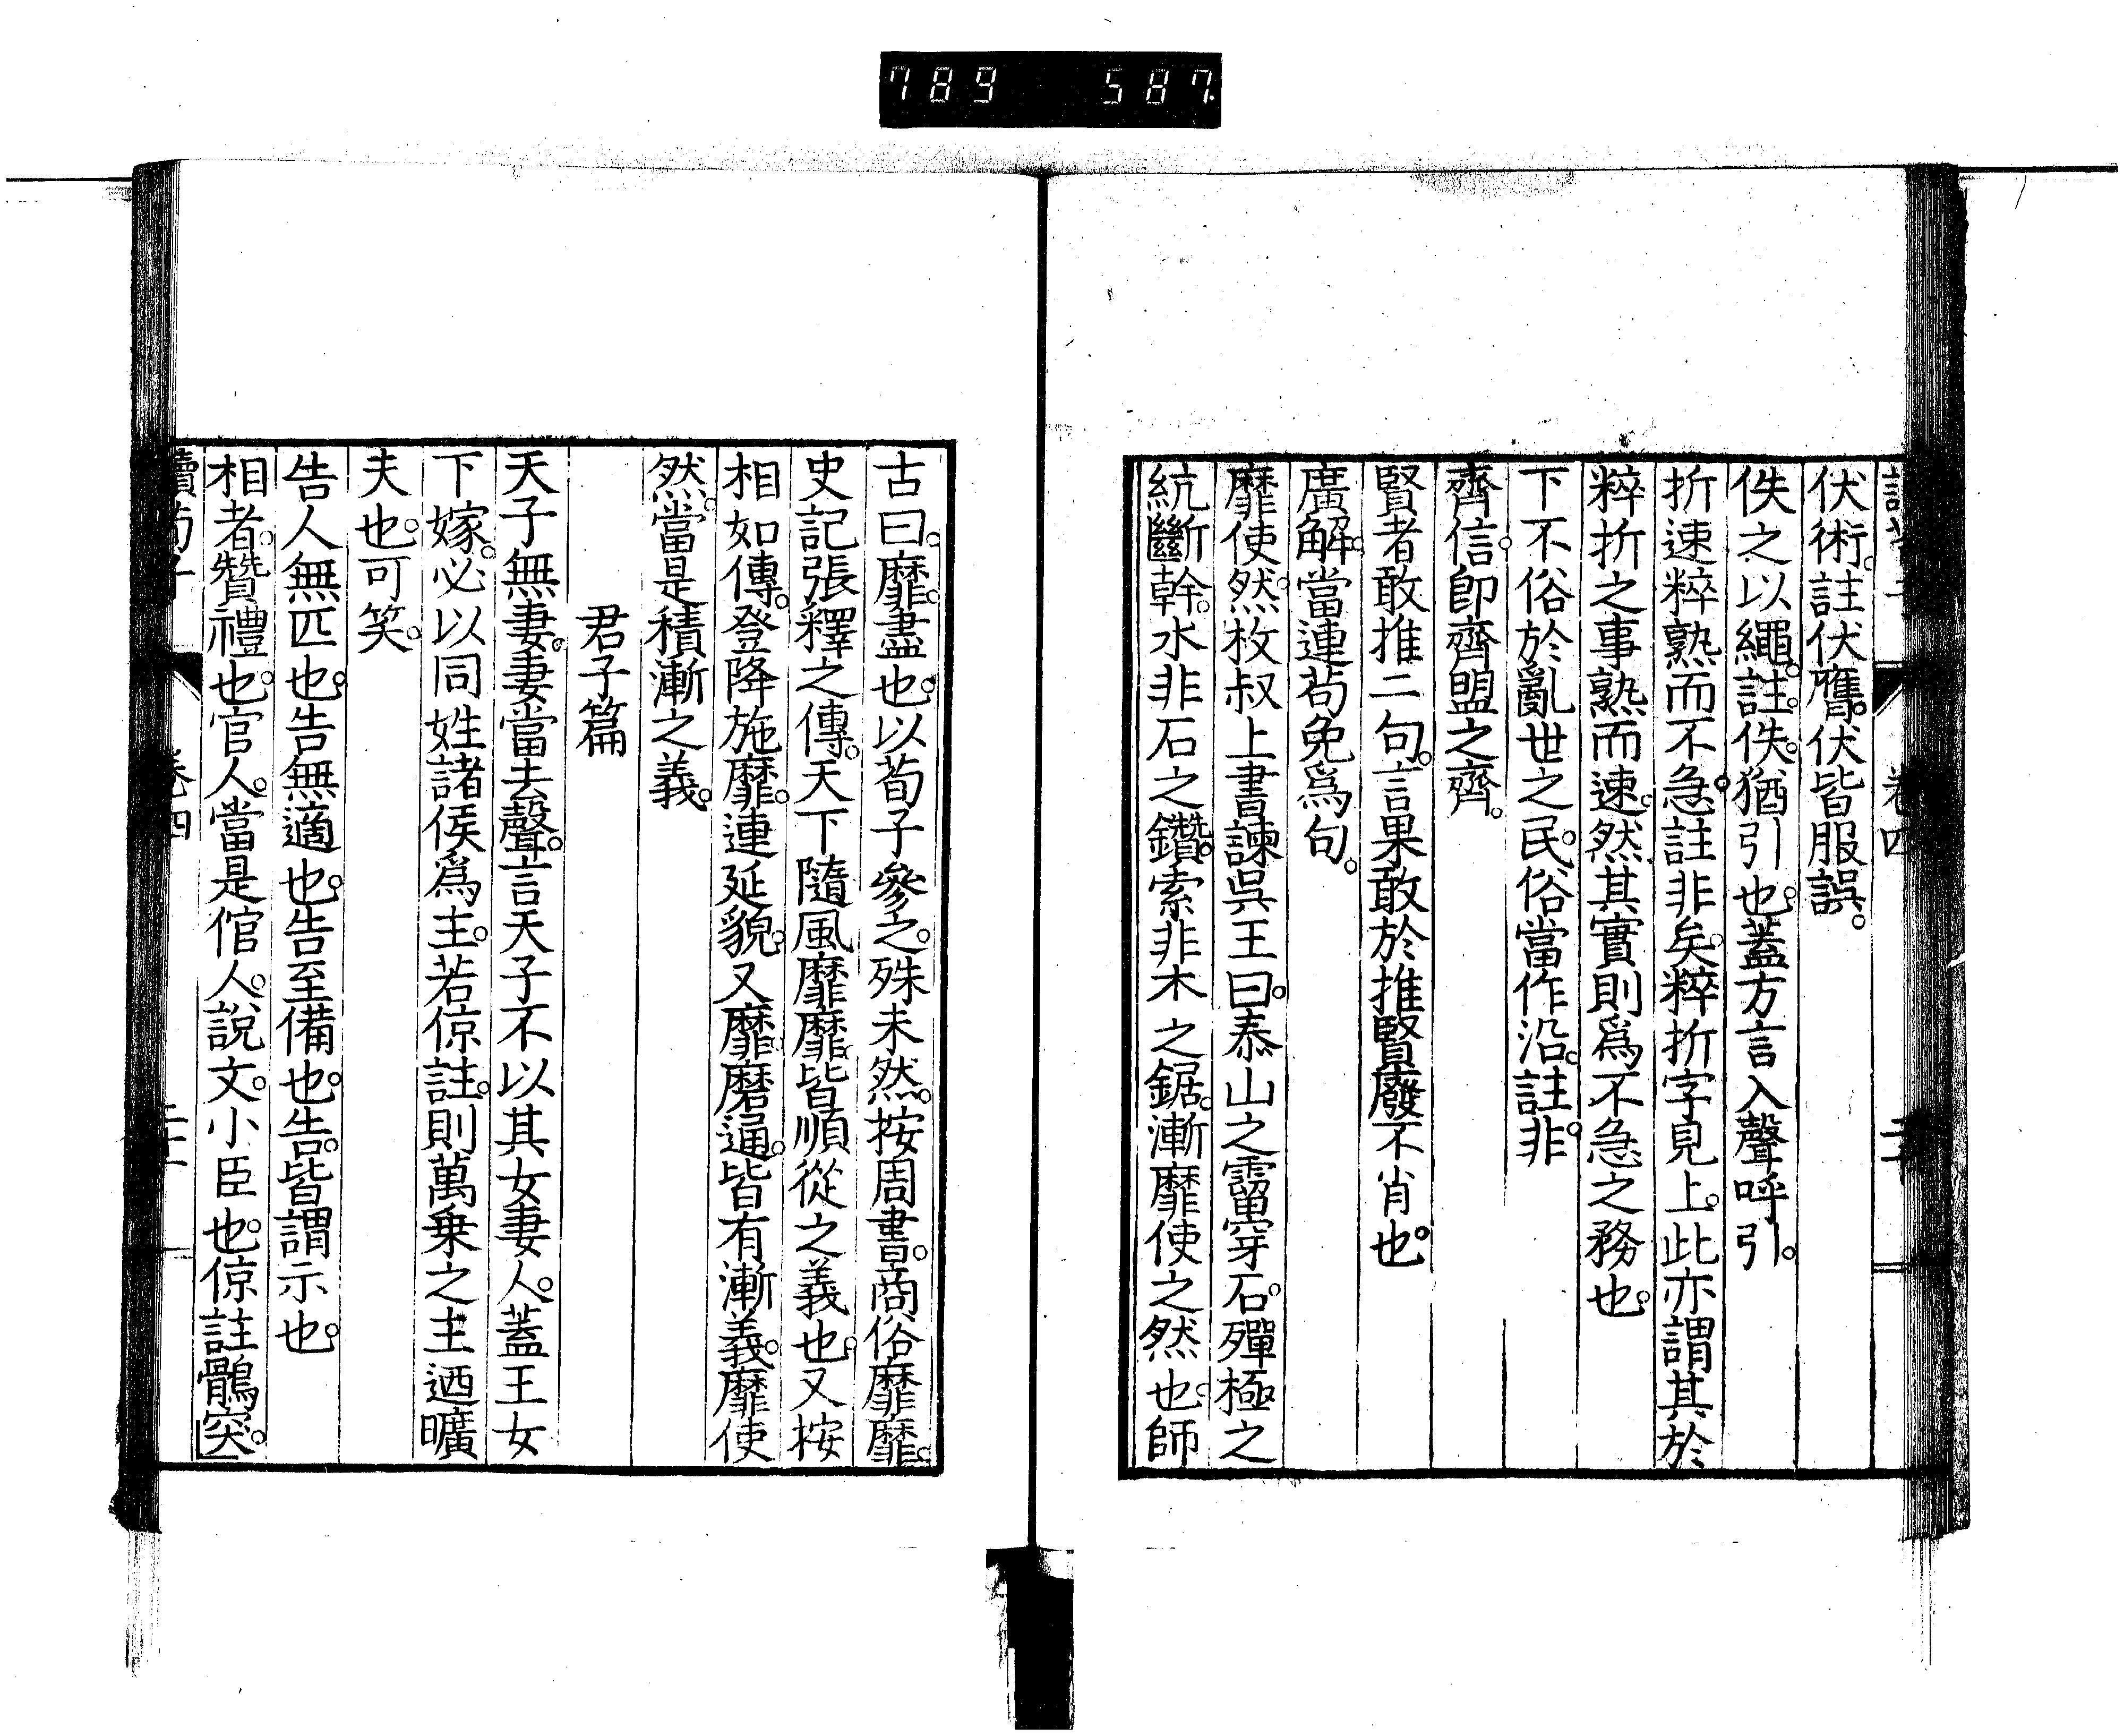 789 587
伏術。註伏膺。伏皆服誤。
佚之以繩。註。佚。猶引也。蓋方言入聲呼引。
折速粹熟而不急。註非矣。粹折字見上。此亦謂其於
粹折之事熟而速。然其實則爲不急之務也。
下不俗於亂世之民。俗當作沿。註非。
齊信。卽齊盟之齊。
賢者敢推二句。言果敢於推賢廢不肖也。
廣解。當連苟免爲句。
靡使然。枚叔上書諫吳王曰。泰山之霤穿石。殫極之
統斷幹。水非石之鑽。索非木之鋸。漸靡使之然也。師
古曰。靡。盡也。以荀子參之。殊未然。按周書。商俗靡靡。
史記張釋之傳。天下隨風靡靡。皆順從之義也。又按
相如傳。登降施靡。連延貌。又靡。磨通。皆有漸義。靡使
然。當是積漸之義。
君子篇
天子無妻。妻當去聲。言天子不以其女妻人。蓋王女
下嫁。必以同姓諸侯爲主。若倞註。則萬乘之主迺曠
夫也。可笑。
告人無匹也。告無適也。告至備也。告。皆謂示也。
相者。贊禮也。官人。當是倌人。說文。小臣也。倞註鶻突。
讀荀子 卷四